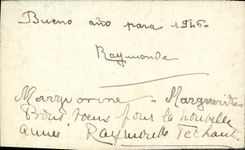 Bueno año para 1946
Raymonde
Maryvonne - Marguerite
Bons voeux pour la nouvelle
année, Raymonde